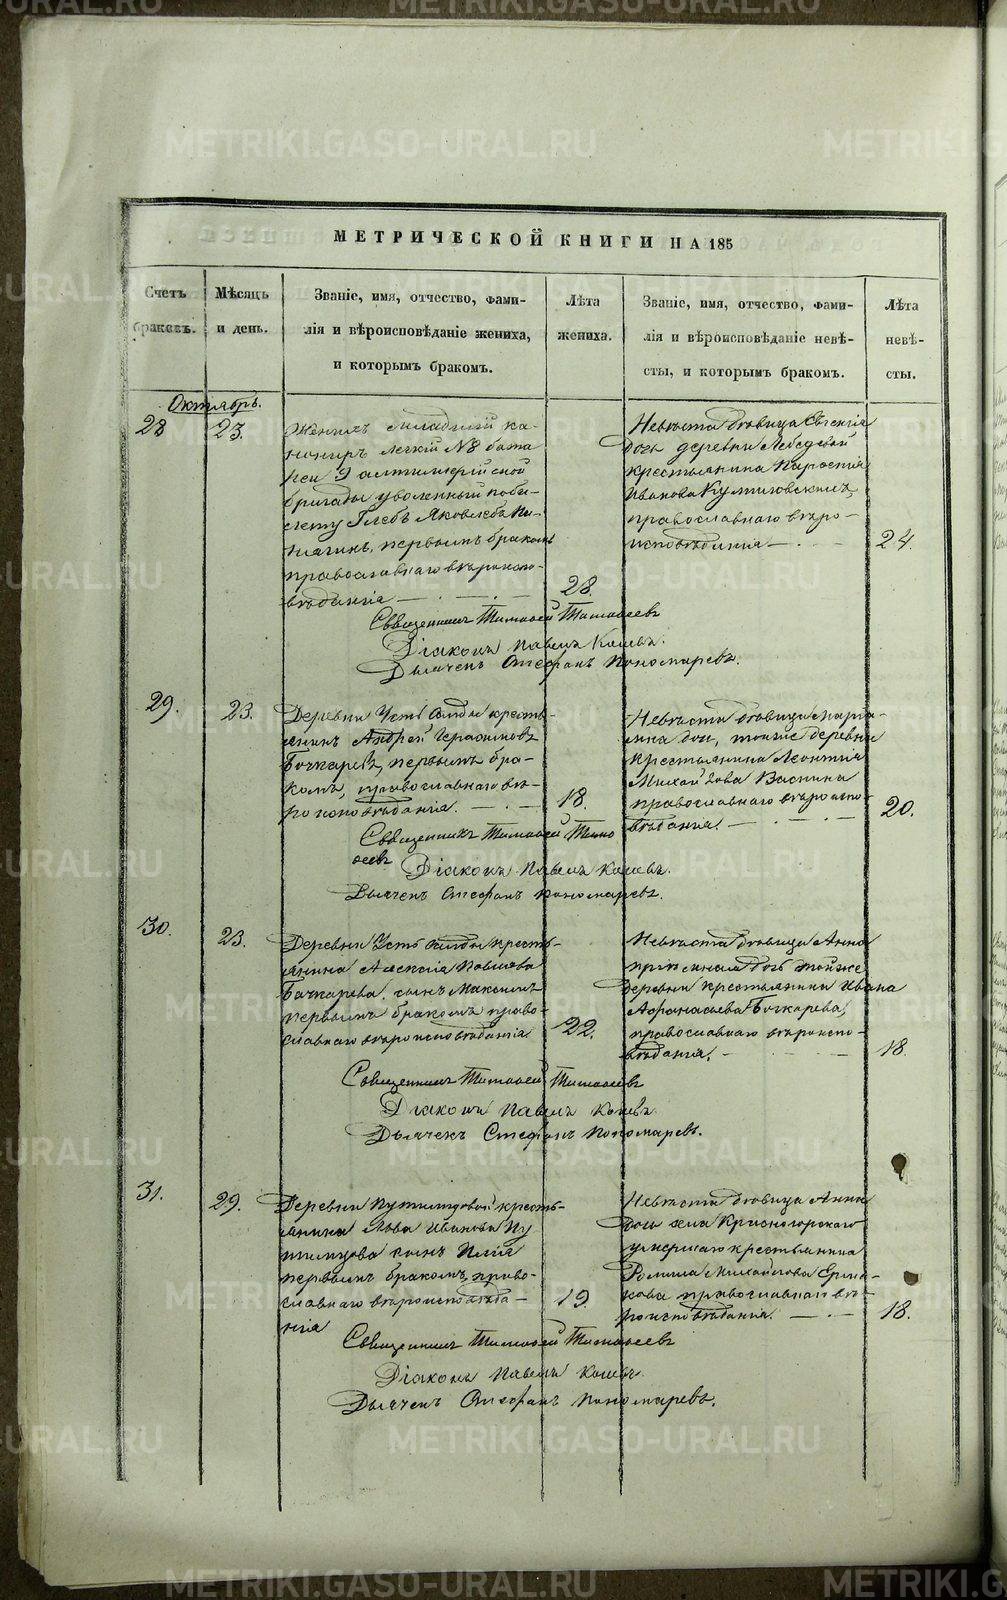 МЕТРИЧЕСКОЙ КНИГИ НА 185
Счетъ браковъ.
Мѣсяцъ и день.
Званіе, имя, отчество, фами-
лія и вѣроисповѣданіе жениха,
и которымъ бракомъ.
Лѣта
жениха.
Званіе, имя, отчество, фами-
лія и вѣроисповѣданіе невѣ-
сты, и которымъ бракомъ.
Лѣта
невѣ-
сты.
Октябрь.
28
23.
Женихъ младшій ка-
нониръ легкій №8 бата
реи 9 артиллерійской
бригады уволенный по би-
лету Глебъ Яковлевъ
первымъ бракомъ
православнаго вѣроиспо-
вѣданія
28.
Невѣста дѣвица Евгенія
дочь деревни Лебедевой
крестьянина
Иванова
православнаго вѣро-
исповѣданія
24.
Священникъ Тимоѳей Тимоѳеевъ
Діаконъ Павелъ
Дьячекъ Стефанъ Пономаревъ.
29.
23.
Деревни Усть кресть-
янинъ Андрей Герасимовъ
Бочкаревъ, первымъ бра-
комъ, православнаго вѣ-
роисповѣданія.
18.
Невѣста дѣвица Марѳа-
дочь, тойже деревни
крестьянина Леонтія
Михайлова Васнина
православнаго вѣроиспо-
вѣданія.
20.
Священникъ Тимоѳей Тимо
ѳеевъ
Діаконъ Павелъ
Дьячекъ Стефанъ Пономаревъ.
30.
23.
Деревни Усть кресть-
янина Алексія Павлова
Бочкарева, сынъ Максимъ
первымъ бракомъ право-
славнаго вѣроисповѣданія
22.
Невѣста дѣвица Анна
дочь тойже
деревни крестьянина Ивана
Афанасьева Бочкарева,
православнаго вѣроиспо-
вѣданія.
18.
Священникъ Тимоѳей Тимоѳеевъ
Діаконъ Павелъ
Дьячекъ Стефанъ Пономаревъ.
31.
29.
Деревни Путимцовой кресть-
янина Льва Иванова Пу
тимцова сынъ Илія
первымъ бракомъ, право-
славнаго вѣроисповѣда-
нія
19.
Невѣста дѣвица Анна
дочь села Красногорскаго
умершаго крестьянина
Романа Михайлова Ерма-
кова православнаго вѣ-
роисповѣданія.
18.
Священникъ Тимоѳей Тимоѳеевъ
Діаконъ Павелъ
Дьячекъ Стефанъ Пономаревъ.
METRIKI.GASO-URAL.RU